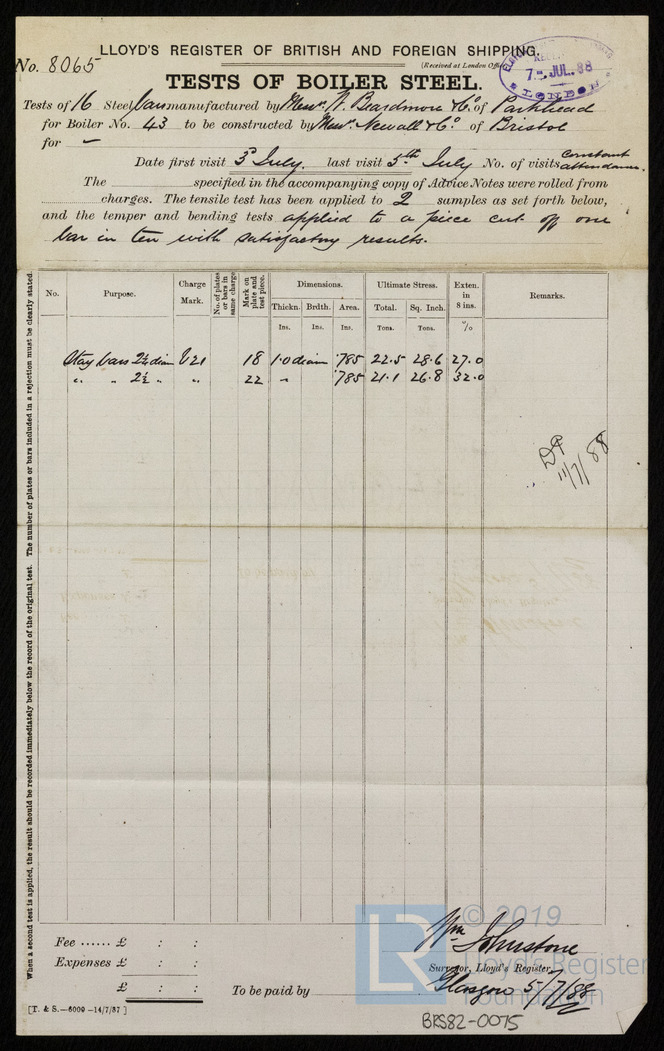 LLOYD'S REGISTER OF BRITISH AND FOREIGN SHIPPING.
No. 8065
(Received at London Office
7 JUL. 88
LONDON
TESTS OF BOILER STEEL.
Tests of 16 Steel bars manufactured by Messrs. W. Beardmore & Co. of Parkhead
for Boiler No. 43 to be constructed by Messrs. Newall & Co. of Bristol
for –
Date first visit 3rd July. last visit 5th July No. of visits Constant attendance.
The specified in the accompanying copy of Advice Notes were rolled from
charges. The tensile test has been applied to 2 samples as set forth below,
and the temper and bending tests applied to a piece cut off one
bar in ten with satisfactory results.
No. Purpose. Charge Mark. No. of plates or bars in same charge Mark on plate and test piece. Dimensions. Ultimate Stress. Exten. in 8 ins. Remarks.
Thickn. Brdth. Area. Total. Sq. Inch.
Ins. Ins. Ins. Tons. Tons. %
Stay bars 2½ diam V21 18 1.0 diam .785 22.5 28.6 27.0
" " 2½ " " 22 " .785 21.1 26.8 32.0
11/7/88
When a second test is applied, the result should be recorded immediately below the record of the original test. The number of plates or bars included in a rejection must be clearly stated.
Fee ...... £ : :
Expenses £ : :
£ : :
To be paid by
Wm Johnstone
Surveyor, Lloyd's Register,
Glasgow 5/7/88
[T. & S.—6000 –14/7/87]
BRS82-0075
LR © 2019
Lloyd's Register
Foundation